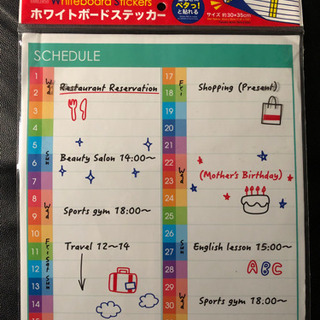 Whiteboard Stickers
ホワイトボードステッカー
ペタっ!
と貼れる
サイズ 約30×35cm
SCHEDULE
1
2 Wed Restaurant Reservation
3
4
5 Sun
6 Beauty Salon 14:00~
7
8 Wed
9 Sports gym 18:00~
10
11 Fri Travel 12~14
12 Sat
13 Sun
14
17 Fri
18 Shopping (Present)
19
20
21
22 Wed (Mother's Birthday)
23
24
25
26
27 English lesson 15:00~
28 ABC
29 Wed
30 Sports gym 18:00~